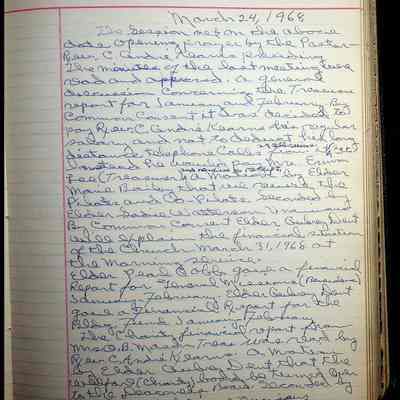 March 24, 1968
The Session met on the above
date Opening prayer by the Pastor
Rev. C. André Kearns presiding
The minutes of the last meeting were
read and approved. A general
discussion concerning the Treasure
report for January and February By
Common Consent it was decided to
pay Rev. C. André Kearns his regular
salary and not to deduct his long
distance Telephone Calls from it
Instead he would pay Mrs.
(Treasurer) A Motion by Elder
Marie Bailey that we the
Pilots and Co-Pilots seconded by
Elder Sadie Watterson
By Common Consent Elder Aubrey Dent
will explain the financial situation
of the Church March 31, 1968 at
the Morning Service.
Elder Pearl gave a financial
Report for General Missions
January February Elder Aubrey Dent
gave a Financial Report for the
Bldg. Fund January February
The Charity financial report from
Mrs. O. B. Mason Treas. was read by
Rev. C. André Kearns. A Motion
by Elder Aubrey Dent that the
(Charity) be turned over
to the Deacons Board seconded by